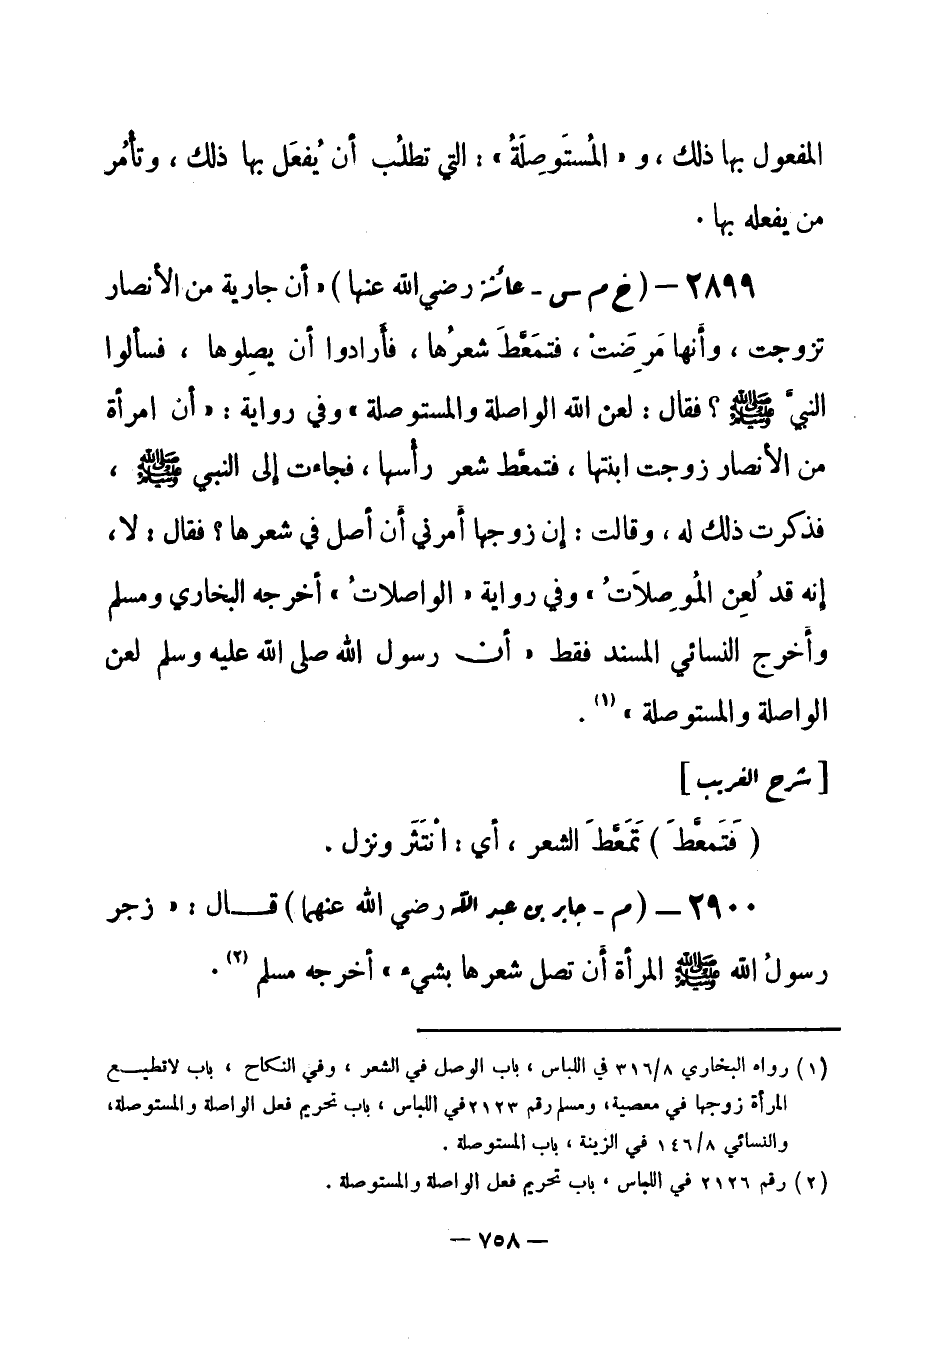 المفعول بها ذلك ، و « المُستَوصِلَةُ » : التي تطلُب أن يُفعَل بها ذلك ، وتأمُر
من يفعله بها .
٢٨٩٩ – ( خ م س - عائشة رضي الله عنها ) « أن جارية من الأنصار
تزوجت ، وأنها مَرِضَتْ ، فتمَعَّطَ شعرُها ، فأرادوا أن يصِلوها ، فسألوا
النبيَّ ﷺ ؟ فقال : لعن الله الواصلة والمستوصلة » وفي رواية : « أن امرأة
من الأنصار زوجت ابنتها ، فتمعَّط شعر رأسها ، فجاءت إلى النبي ﷺ ،
فذكرت ذلك له ، وقالت : إن زوجها أمرني أن أصل في شعرها ؟ فقال : لا ،
إنه قد لُعِن المُوصِلَاتُ » وفي رواية « الواصلاتُ » أخرجه البخاري ومسلم
وأخرج النسائي المسند فقط « أن رسول الله صلى الله عليه وسلم لعن
الواصلة والمستوصلة » (١) .
[ شرح الغريب ]
( فَتَمعَّطَ ) تَمَعَّطَ الشعر ، أي : انْتَثَر ونزل .
٢٩٠٠ – ( م - جابر بن عبد الله رضي الله عنهما ) قال : « زجر
رسولُ الله ﷺ المرأة أن تصل شعرها بشيء » أخرجه مسلم (٢) .
(١) رواه البخاري ٣١٦/٨ في اللباس ، باب الوصل في الشعر ، وفي النكاح ، باب لا تطيع
المرأة زوجها في معصية، ومسلم رقم ٢١٢٣ في اللباس ، باب تحريم فعل الواصلة والمستوصلة،
والنسائي ١٤٦/٨ في الزينة ، باب المستوصلة .
(٢) رقم ٢١٢٦ في اللباس ، باب تحريم فعل الواصلة والمستوصلة .
– ٧٥٨ –